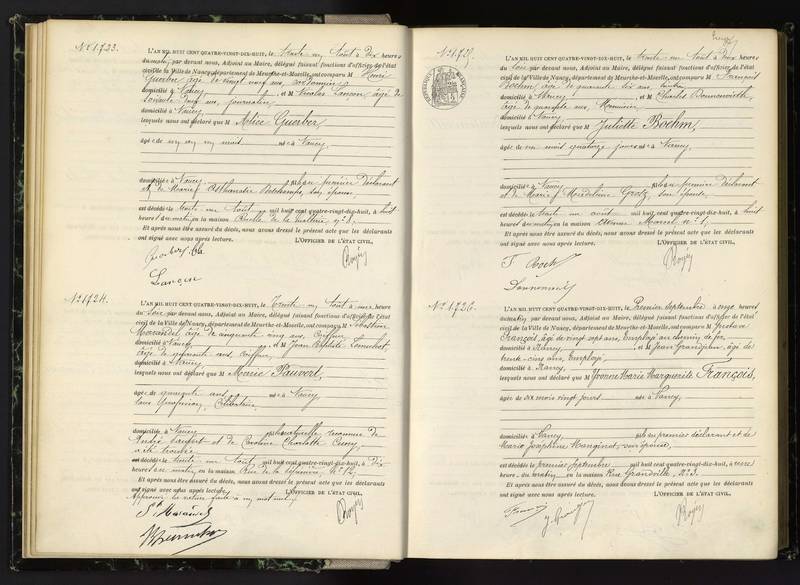 N° 1723.
L'AN MIL HUIT CENT QUATRE-VINGT-DIX-HUIT, le trente un Août à dix heures
du matin, par devant nous, Adjoint au Maire, délégué faisant fonctions d'officier de l'état
civil de la Ville de Nancy, département de Meurthe-et-Moselle, ont comparu M Henri
Guerber, âgé de vingt neuf ans,
domicilié à Nancy, et M Nicolas Lançon, âgé de
soixante neuf ans, journalier,
domicilié à Nancy,
lesquels nous ont déclaré que M Alice Guerber,
âgée de un an un mois née à Nancy,
domiciliée à Nancy, fille du premier déclarant
et de Marie son épouse,
est décédée le trente un Août mil huit cent quatre-vingt-dix-huit, à huit
heures du matin, en la maison Ruelle de la n° 1,
Et après nous être assuré du décès, nous avons dressé le présent acte que les déclarants
ont signé avec nous après lecture. L'OFFICIER DE L'ÉTAT CIVIL,
Lançon
N° 1724.
L'AN MIL HUIT CENT QUATRE-VINGT-DIX-HUIT, le trente un Août à une heure
du soir par devant nous, Adjoint au Maire, délégué faisant fonctions d'officier de l'état
civil de la Ville de Nancy, département de Meurthe-et-Moselle, ont comparu M Sébastien
âgé de cinquante cinq ans, Coiffeur,
domicilié à Nancy, et M Jean Baptiste
âgé de quarante ans, Coiffeur,
domicilié à Nancy,
lesquels nous ont déclaré que M Marie Pauvert,
âgée de quarante ans née à Nancy
sans profession, Célibataire,
domiciliée à Nancy, fille naturelle reconnue de
et de Caroline Charlotte
est décédée le trente un Août mil huit cent quatre-vingt-dix-huit, à dix
heures du matin, en la maison Rue de la
Et après nous être assuré du décès, nous avons dressé le présent acte que les déclarants
ont signé avec nous après lecture. L'OFFICIER DE L'ÉTAT CIVIL,
N° 1725.
L'AN MIL HUIT CENT QUATRE-VINGT-DIX-HUIT, le trente un Août à deux heures
du soir par devant nous, Adjoint au Maire, délégué faisant fonctions d'officier de l'état
civil de la Ville de Nancy, département de Meurthe-et-Moselle, ont comparu M François
Boehm, âgé de quarante six ans,
domicilié à Nancy, et M Charles
âgé de quarante ans, Menuisier,
domicilié à Nancy,
lesquels nous ont déclaré que M Juliette Boehm,
âgée de un mois quatorze jours née à Nancy,
domiciliée à Nancy fille du premier déclarant
et de Marie Madeleine son épouse,
est décédée le trente un août mil huit cent quatre-vingt-dix-huit, à huit
heures du matin, en la maison n° 1,
Et après nous être assuré du décès, nous avons dressé le présent acte que les déclarants
ont signé avec nous après lecture. L'OFFICIER DE L'ÉTAT CIVIL,
N° 1726.
L'AN MIL HUIT CENT QUATRE-VINGT-DIX-HUIT, le Premier Septembre à onze heures
du matin, par devant nous, Adjoint au Maire, délégué faisant fonctions d'officier de l'état
civil de la Ville de Nancy, département de Meurthe-et-Moselle, ont comparu M Gustave
François, âgé de vingt sept ans, Employé au chemin de fer,
domicilié à Nancy, et M Jean Grandjean, âgé de
trente-cinq ans, Employé,
domicilié à Nancy,
lesquels nous ont déclaré que M Yvonne Marie Marguerite François,
âgée de six mois vingt jours née à Nancy,
domiciliée à Nancy, fille du premier déclarant et de
Marie Joséphine Manginot, son épouse,
est décédée le premier Septembre mil huit cent quatre-vingt-dix-huit, à onze
heures du matin en la maison Rue Grandville, N° 3.
Et après nous être assuré du décès, nous avons dressé le présent acte que les déclarants
ont signé avec nous après lecture. L'OFFICIER DE L'ÉTAT CIVIL,